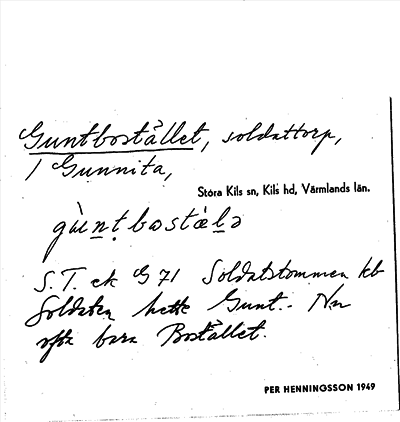 Guntbostället, soldattorp,
/ Gunnita,
Stora Kils sn, Kils hd, Värmlands län.
gùn̲ṭbostæ̀l̲ə
S.T. ek G 71 Soldatstommen kb
Soldaten hette Gunt. Nu
ofta bara Bostället.
PER HENNINGSSON 1949